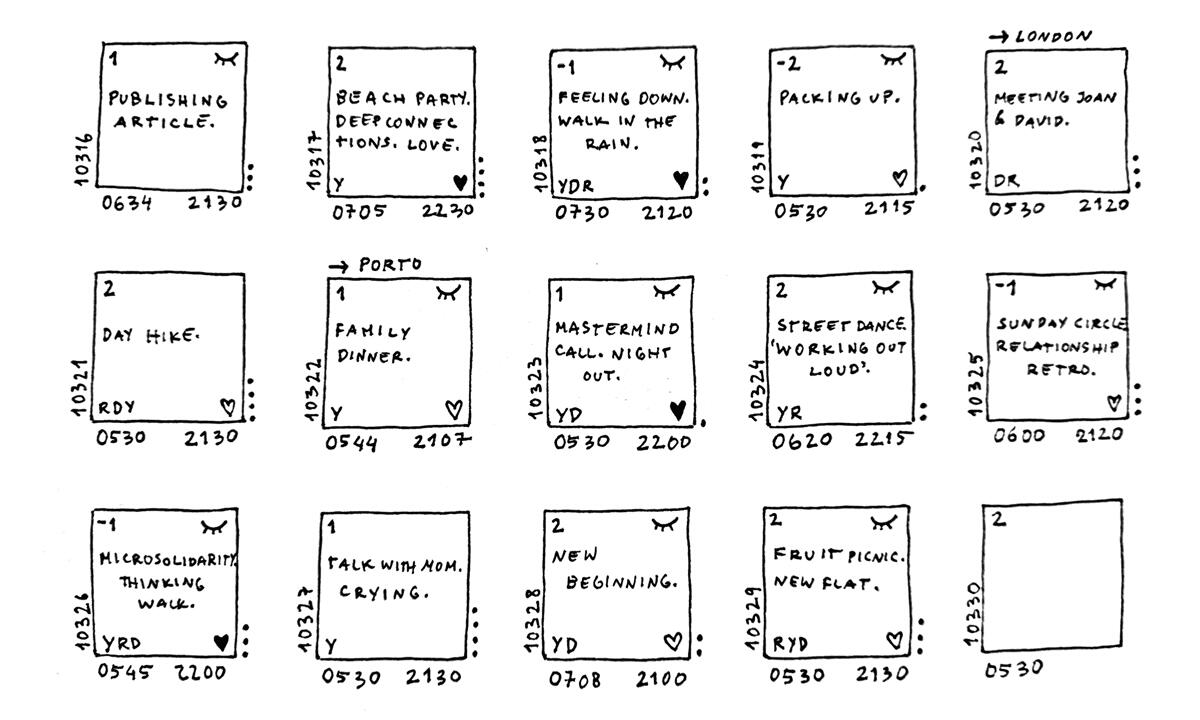 1
PUBLISHING
ARTICLE.
10316
0634 2130
2
BEACH PARTY.
DEEP CONNEC
TIONS. LOVE.
Y
10317
0705 2230
-1
FEELING DOWN.
WALK IN THE
RAIN.
YDR
10318
0730 2120
-2
PACKING UP.
Y
10319
0530 2115
→ LONDON
2
MEETING JOAN
& DAVID.
DR
10320
0530 2120
2
DAY HIKE.
RDY
10321
0530 2130
→ PORTO
1
FAMILY
DINNER.
Y
10322
0544 2107
1
MASTERMIND
CALL. NIGHT
OUT.
YD
10323
0530 2200
2
STREET DANCE.
'WORKING OUT
LOUD'.
YR
10324
0620 2215
-1
SUNDAY CIRCLE
RELATIONSHIP
RETRO.
10325
0600 2120
-1
MICROSOLIDARITY.
THINKING
WALK.
YRD
10326
0545 2200
1
TALK WITH MOM.
CRYING.
Y
10327
0530 2130
2
NEW
BEGINNING.
YD
10328
0708 2100
2
FRUIT PICNIC.
NEW FLAT.
RYD
10329
0530 2130
2
10330
0530